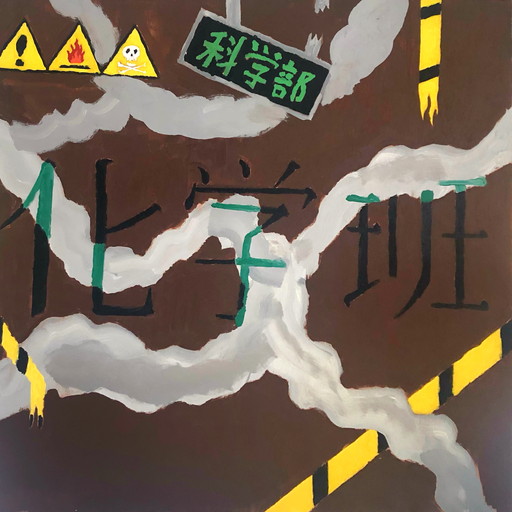 科学部
化学班